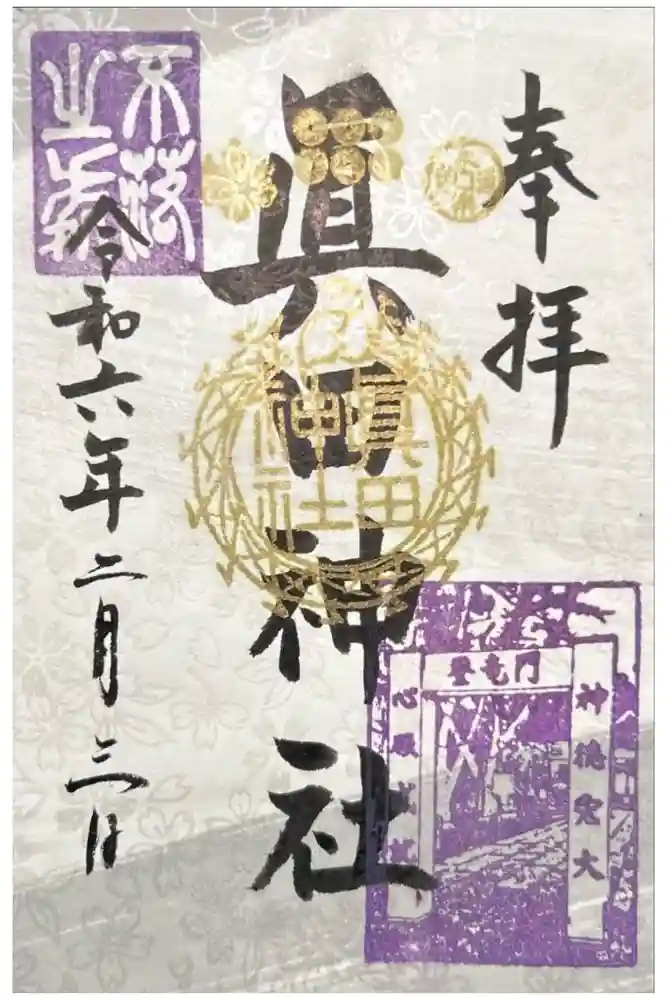 奉拝
眞田神社
眞田
神社
不落
之砦
登竜門
神徳宏大
心願成就
令和六年二月三日